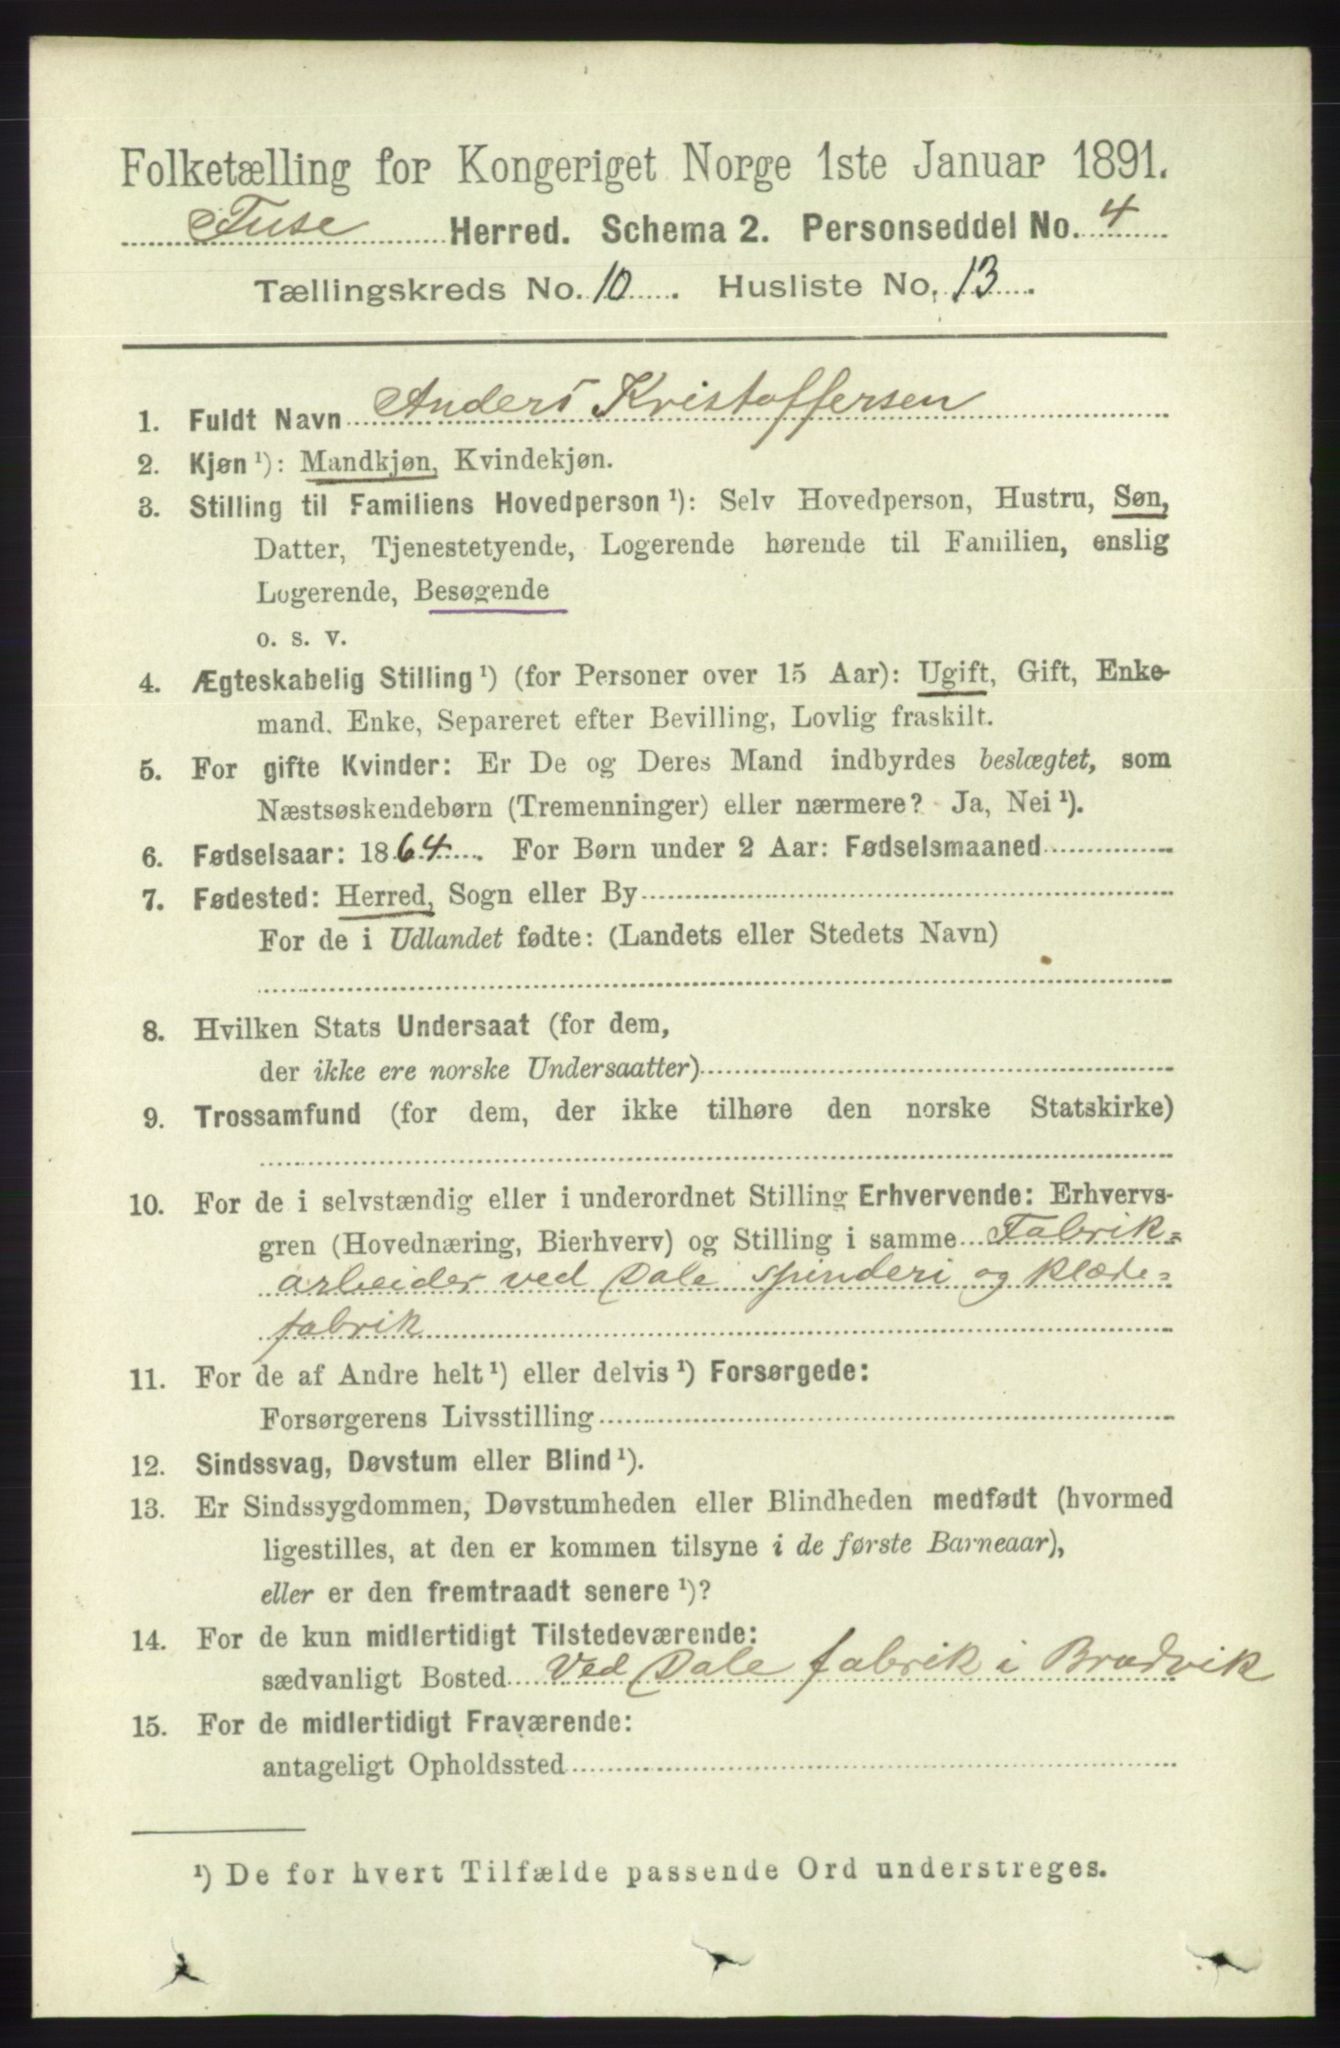 Folketælling for Kongeriget Norge 1ste Januar 1891.
Fuse Herred. Schema 2. Personseddel No. 4
Tællingskreds No. 10. Husliste No. 13.
1. Fuldt Navn Anders Kristoffersen
2. Kjøn ¹): Mandkjøn, Kvindekjøn.
3. Stilling til Familiens Hovedperson ¹): Selv Hovedperson, Hustru, Søn,
Datter, Tjenestetyende, Logerende hørende til Familien, enslig
Logerende, Besøgende
o. s. v.
4. Ægteskabelig Stilling ¹) (for Personer over 15 Aar): Ugift, Gift, Enke-
mand, Enke, Separeret efter Bevilling, Lovlig fraskilt.
5. For gifte Kvinder: Er De og Deres Mand indbyrdes beslægtet, som
Næstsøskendebørn (Tremenninger) eller nærmere? Ja, Nei ¹).
6. Fødselsaar: 1864. For Børn under 2 Aar: Fødselsmaaned
7. Fødested: Herred, Sogn eller By
For de i Udlandet fødte: (Landets eller Stedets Navn)
8. Hvilken Stats Undersaat (for dem,
der ikke ere norske Undersaatter)
9. Trossamfund (for dem, der ikke tilhøre den norske Statskirke)
10. For de i selvstændig eller i underordnet Stilling Erhvervende: Erhvervs-
gren (Hovednæring, Bierhverv) og Stilling i samme Fabrik-
arbeider ved Dale spinderi og klæde-
fabrik
11. For de af Andre helt ¹) eller delvis ¹) Forsørgede:
Forsørgerens Livsstilling
12. Sindssvag, Døvstum eller Blind ¹).
13. Er Sindssygdommen, Døvstumheden eller Blindheden medfødt (hvormed
ligestilles, at den er kommen tilsyne i de første Barneaar),
eller er den fremtraadt senere ¹)?
14. For de kun midlertidigt Tilstedeværende:
sædvanligt Bosted Ved Dale fabrik i Brudvik
15. For de midlertidigt Fraværende:
antageligt Opholdssted
¹) De for hvert Tilfælde passende Ord understreges.